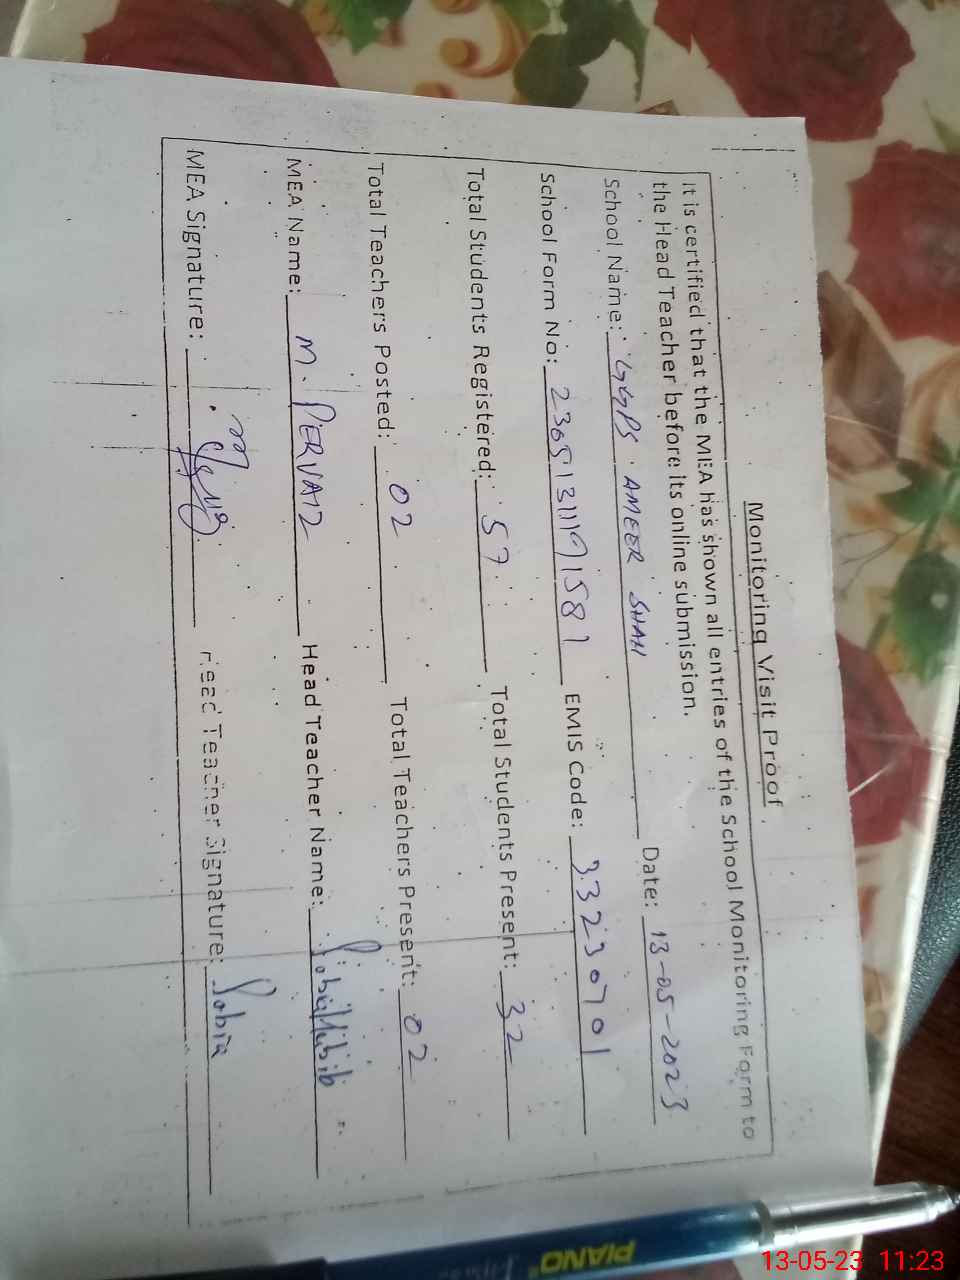 Monitoring Visit Proof
It is certified that the MEA has shown all entries of the School Monitoring Form to
the Head Teacher before its online submission.
School Name: GGPS AMEER SHAH Date: 13-05-2023
School Form No: 23051311191581 EMIS Code: 33230701
Total Students Registered: 57 Total Students Present: 32
Total Teachers Posted: 02 Total Teachers Present: 02
MEA Name: M. PERVAIZ Head Teacher Name: Sobia Habib
MEA Signature: Head Teacher Signature: Sobia
PIANO
13-05-23 11:23